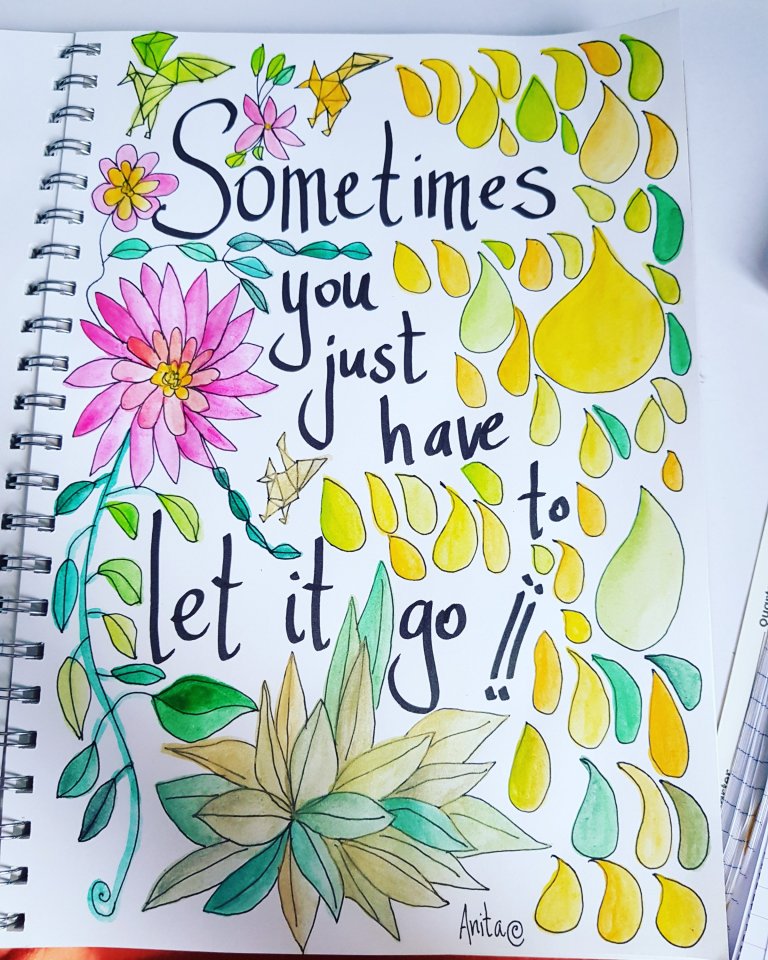 Sometimes
you
just
have
to
let it go !!
Anita©